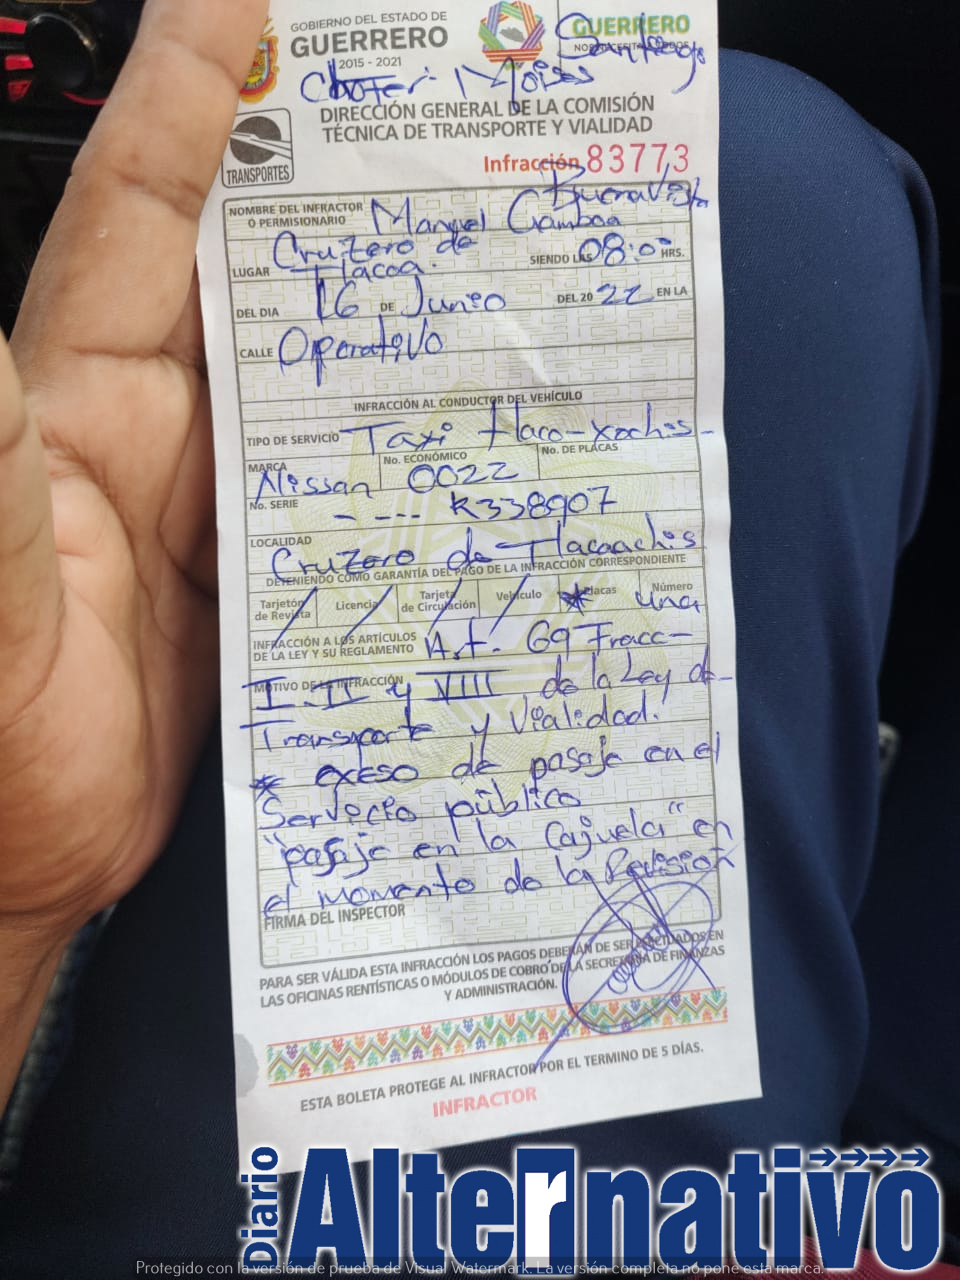 GOBIERNO DEL ESTADO DE
GUERRERO
2015 - 2021
GUERRERO
Santiago
Chofer Moises
DIRECCIÓN GENERAL DE LA COMISIÓN
TÉCNICA DE TRANSPORTE Y VIALIDAD
TRANSPORTES
Infracción 83773
NOMBRE DEL INFRACTOR
O PERMISIONARIO Manuel Gamboa Buenavista
LUGAR Cruzero de Tlacoa. SIENDO LAS 08:00 HRS.
DEL DIA 16 DE Junio DEL 20 22 EN LA
CALLE Operativo
INFRACCIÓN AL CONDUCTOR DEL VEHÍCULO
TIPO DE SERVICIO Taxi tlaco-xochis-
MARCA Nissan No. ECONÓMICO 0022 No. DE PLACAS
No. SERIE - --- K338907
LOCALIDAD Cruzero de Tlacoachis
DETENIENDO COMO GARANTÍA DEL PAGO DE LA INFRACCIÓN CORRESPONDIENTE
Tarjetón de Revista Licencia Tarjeta de Circulación Vehículo Placas Número una
INFRACCIÓN A LOS ARTÍCULOS
DE LA LEY Y SU REGLAMENTO Art. 69 Fracc-
MOTIVO DE LA INFRACCIÓN I. II y VIII de la Ley de
Transporte y Vialidad.
* exeso de pasaje en el
Servicio público
"pasaje en la Cajuela" en
el momento de la Revisión
FIRMA DEL INSPECTOR
PARA SER VÁLIDA ESTA INFRACCIÓN LOS PAGOS DEBERÁN DE SER EFECTUADOS EN
LAS OFICINAS RENTÍSTICAS O MÓDULOS DE COBRO DE LA SECRETARIA DE FINANZAS
Y ADMINISTRACIÓN.
ESTA BOLETA PROTEGE AL INFRACTOR POR EL TERMINO DE 5 DÍAS.
INFRACTOR
Diario
Alternativo
Protegido con la versión de prueba de Visual Watermark. La versión completa no pone esta marca.